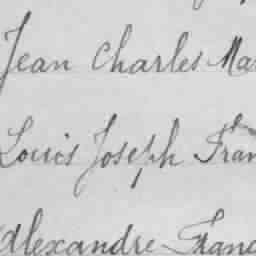 Jean Charles Ma
Louis Joseph Fran
Alexandre Franc